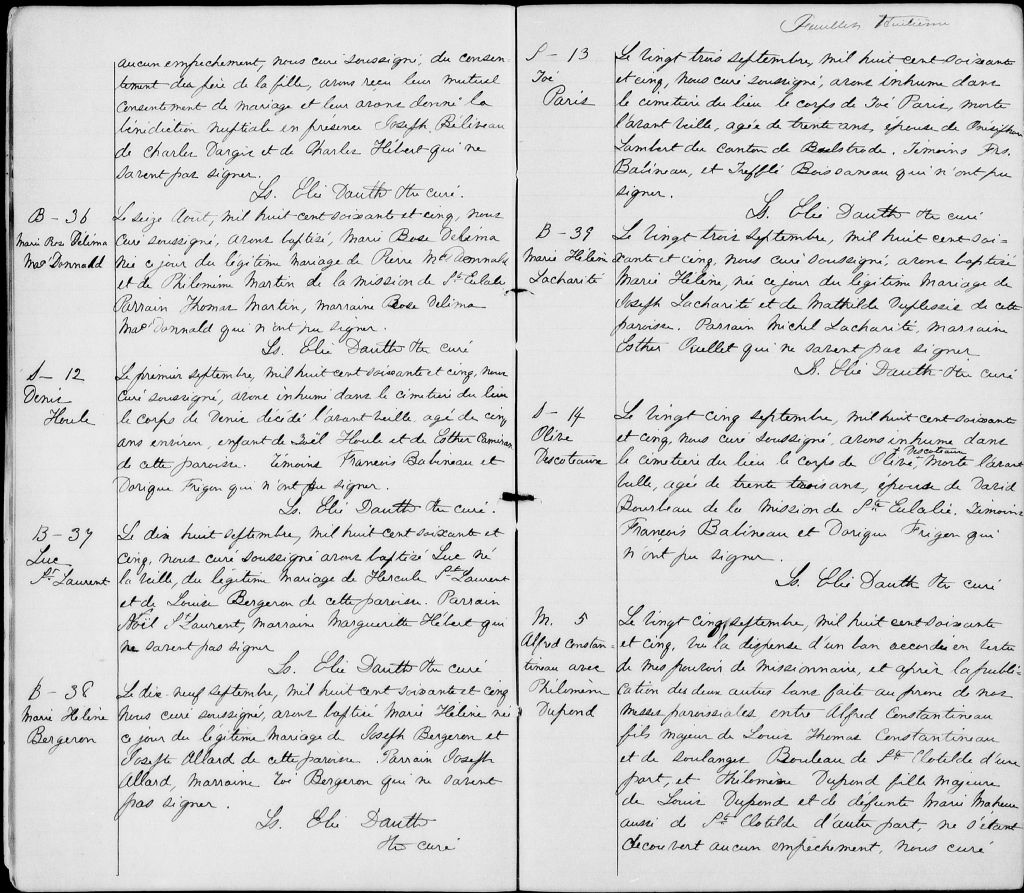 aucun empêchement, nous curé soussigné, du consen-
tement du père de la fille, avons reçu leur mutuel
consentement de mariage et leur avons donné la
bénédiction nuptiale en présence Joseph Béliveau
de Charles Dargis et de Charles Hébert qui ne
savent pas signer.
Ls. Elie Dauth Ptr curé.
B - 36
Marie Rose Délima
Mac Donnald
Le seize Août, mil huit cent soixante et cinq, nous
curé soussigné, avons baptisé, Marie Rose Délima
née ce jour du légitime mariage de Pierre Mac Donnald
et de Philomène Martin de la mission de Ste Eulalie,
Parrain Thomas Martin, marraine Rose Délima
Mac Donnald qui n'ont pu signer.
Ls. Elie Dauth Ptr curé
S - 12
Denis
Houle
Le premier septembre, mil huit cent soixante et cinq, nous
curé soussigné, avons inhumé dans le cimetière du lieu
le corps de Denis décédé l'avant veille agé de cinq
ans environ, enfant de Joël Houle et de Esther Camiran
de cette paroisse. Témoins François Babineau et
Dorique Frigon qui n'ont pu signer.
Ls. Elie Dauth Ptr curé.
B - 37
Luc
St Laurent
Le dix huit septembre, mil huit cent soixante et
cinq, nous curé soussigné avons baptisé Luc né
la veille, du légitime mariage de Hercule St Laurent
et de Louise Bergeron de cette paroisse. Parrain
Noël St Laurent, marraine Marguerette Hébert qui
ne savent pas signer
Ls. Elie Dauth Ptr curé
B - 38
Marie Helène
Bergeron
Le dix neuf septembre, mil huit cent soixante et cinq
nous curé soussigné, avons baptisé Marie Helène née
ce jour du légitime mariage de Joseph Bergeron et
Josephte Allard de cette paroisse Parrain Joseph
Allard, marraine Zoé Bergeron qui ne savent
pas signer.
Ls. Elie Dauth
Ptr curé
Feuillet Huitième
S - 13
Zoé
Paris
Le vingt trois septembre, mil huit cent soixante
et cinq, nous curé soussigné, avons inhumé dans
le cimetière du lieu le corps de Zoé Paris, morte
l'avant veille, agée de trente ans, épouse de Onésiphore
Lambert du canton de Bulstrode. Temoins Frs.
Babineau, et Trefflé Boissoneau qui n'ont pu
signer.
Ls. Elie Dauth Ptr curé
B - 39
Marie Hélène
Lacharité
Le vingt trois septembre, mil huit cent soi-
xante et cinq, nous curé soussigné, avons baptisé
Marie Helène, née ce jour du légitime Mariage de
Joseph Lacharité et de Mathilde Duplessis de cette
paroisse. Parrain Michel Lacharité, marraine
Esther Ouellet qui ne savent pas signer
Ls. Elie Dauth Ptr curé
S - 14
Olive
Descoteaux
Le vingt cinq septembre, mil huit cent soixante
et cinq, nous curé soussigné, avons inhumé dans
+ Descoteaux
le cimetière du lieu le corps de Olive, morte l'avant
veille, agée de trente trois ans, épouse de David
Bourbeau de la mission de Ste Eulalie. Temoins
François Babineau et Dorique Frigon qui
n'ont pu signer.
Ls. Elie Dauth Ptr curé
M. 5
Alfred Constan-
tineau avec
Philomène
Dupond
Le vingt cinq septembre, mil huit cent soixante
et cinq, vu la dispense d'un ban accordée en vertu
de mes pouvoir de missionnaire, et après la publi-
cation des deux autres bans faite au prone de nos
messes paroissiales entre Alfred Constantineau
fils majeur de Louis Thomas Constantineau
et de Soulanges Bouleau de Ste Clotilde d'une
part, et Philomène Dupond fille majeure
de Louis Dupond et de défunte Marie Maheux
aussi de Ste Clotilde d'autre part, ne s'étant
découvert aucun empêchement, nous curé